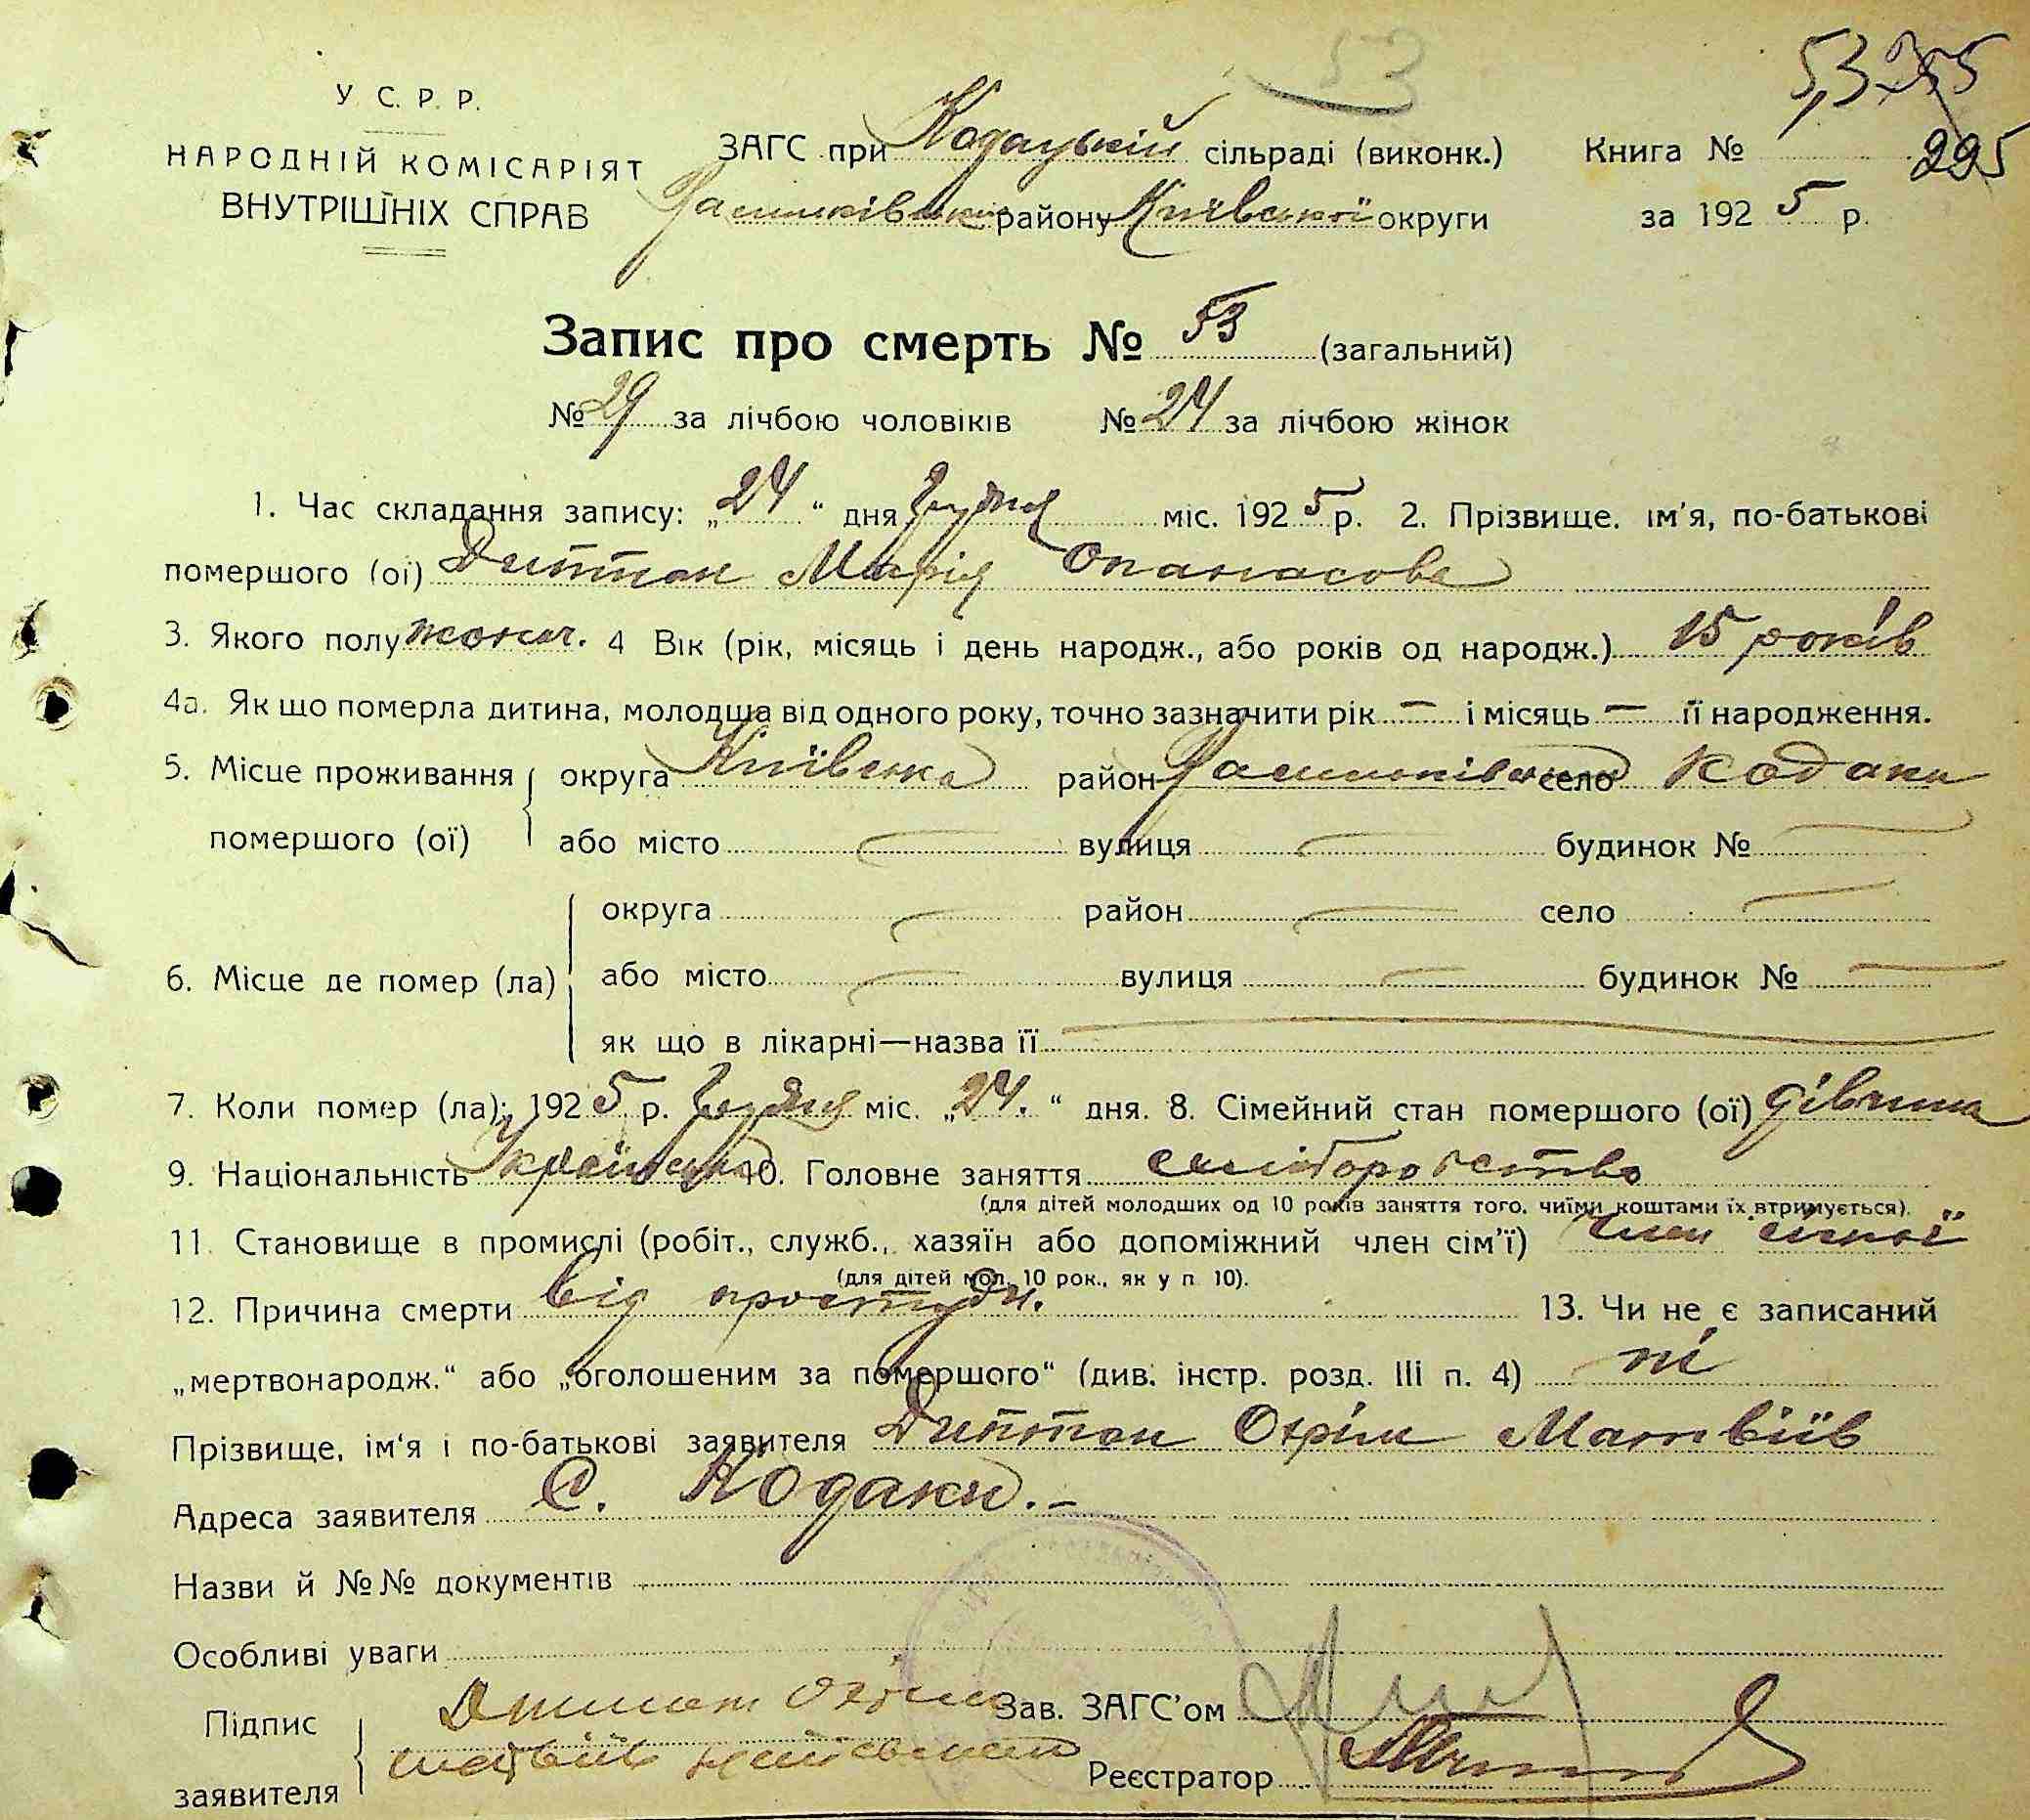 53
53
У. С. Р. Р.
225
НАРОДНІЙ КОМІСАРІЯТ
ВНУТРІШНІХ СПРАВ
ЗАГС при Кодацькій сільраді (виконк.) Книга №
району Київської округи за 1925 р.
Запис про смерть № 53 (загальний)
№ 29 за лічбою чоловіків № 24 за лічбою жінок
1. Час складання запису: „24“ дня Грудня міс. 1925 р. 2. Прізвище, ім'я, по-батькові
помершого (ої) Диптан Марія Опанасова
3. Якого полу жоноч. 4 Вік (рік, місяць і день народж., або років од народж.) 15 років
4а. Як що померла дитина, молодша від одного року, точно зазначити рік — і місяць — її народження.
5. Місце проживання округа Київська район село Кодаки
помершого (ої) або місто — вулиця — будинок № —
округа — район — село —
6. Місце де помер (ла) або місто — вулиця — будинок № —
як що в лікарні—назва її —
7. Коли помер (ла): 1925 р. Грудня міс. „24.“ дня. 8. Сімейний стан помершого (ої) дівчина
9. Національність Українка 10. Головне заняття хліборобство
(для дітей молодших од 10 років заняття того, чиїми коштами їх втримується).
11. Становище в промислі (робіт., служб., хазяїн або допоміжний член сім'ї) член сімьї
(для дітей мол. 10 рок., як у п 10).
12. Причина смерти Від простуди. 13. Чи не є записаний
„мертвонародж.“ або „оголошеним за помершого“ (див. інстр. розд. III п. 4) ні
Прізвище, ім'я і по-батькові заявителя Диптан Охрім Матвіїв
Адреса заявителя С. Кодаки.-
Назви й №№ документів
Особливі уваги
Підпис Охрім Зав. ЗАГС'ом
заявителя матвіїв Реєстратор